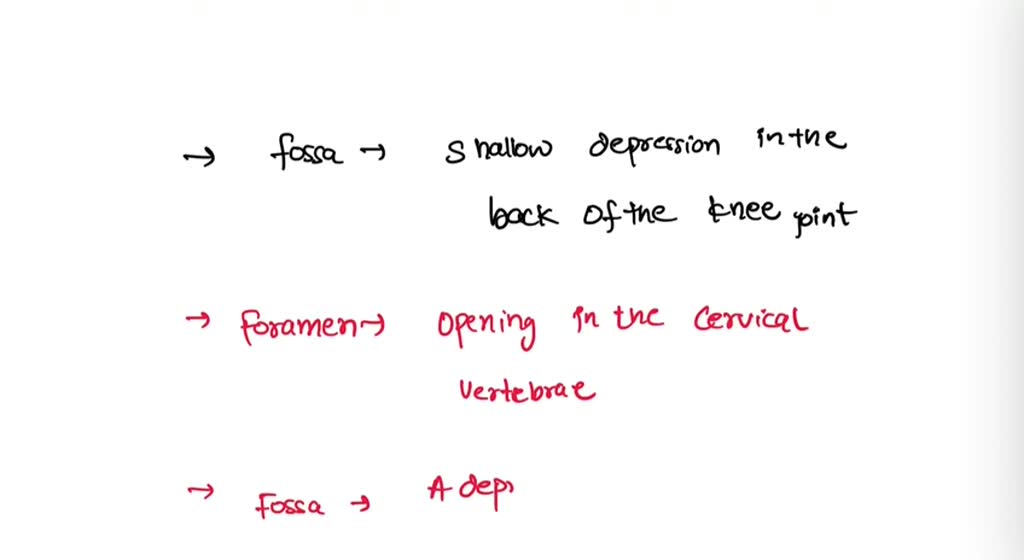 → fossa → shallow depression in the
back of the knee yoint
→ foramen → opening in the cervical
vertebrae
→ Fossa → A depr